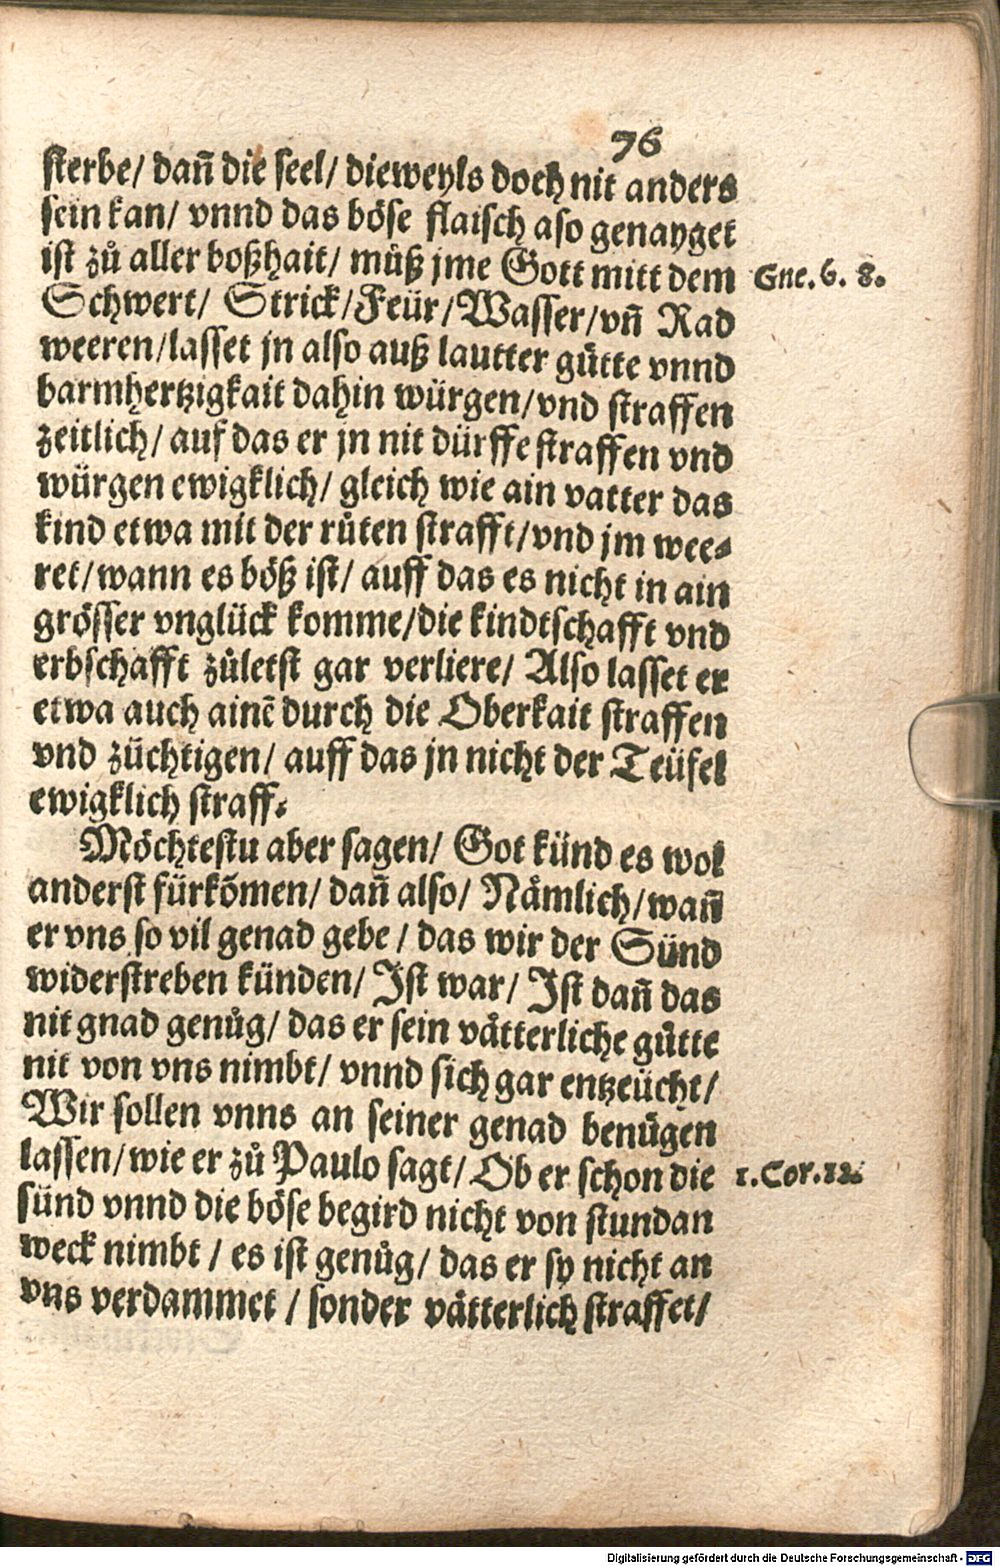 76
sterbe/ dañ die seel/ dieweyls doch nit anders
sein kan/ vnnd das böse flaisch aso genayget
ist zů aller boßhait/ můß jme Gott mitt dem
Gne. 6. 8.
Schwert/ Strick/ Feür/ Wasser/ vñ Rad
weeren/ lasset jn also auß lautter gůtte vnnd
barmhertzigkait dahin würgen/ vnd straffen
zeitlich/ auf das er jn nit dürffe straffen vnd
würgen ewigklich/ gleich wie ain vatter das
kind etwa mit der růten strafft/ vnd jm wee⸗
ret/ wann es böß ist/ auff das es nicht in ain
grösser vnglück komme/ die kindtschafft vnd
erbschafft zůletst gar verliere/ Also lasset er
etwa auch ainẽ durch die Oberkait straffen
vnd züchtigen/ auff das jn nicht der Teüfel
ewigklich straff.
Möchtestu aber sagen/ Got künd es wol
anderst fürkõmen/ dañ also/ Nämlich/ wañ
er vns so vil genad gebe/ das wir der Sünd
widerstreben künden/ Ist war/ Ist dañ das
nit gnad genůg/ das er sein vätterliche gůtte
nit von vns nimbt/ vnnd sich gar entzeücht/
Wir sollen vnns an seiner genad benůgen
lassen/ wie er zů Paulo sagt/ Ob er schon die
1. Cor. 12.
sünd vnnd die böse begird nicht von stundan
weck nimbt/ es ist genůg/ das er sy nicht an
vns verdammet/ sonder vätterlich straffet/
Digitalisierung gefördert durch die Deutsche Forschungsgemeinschaft - DFG